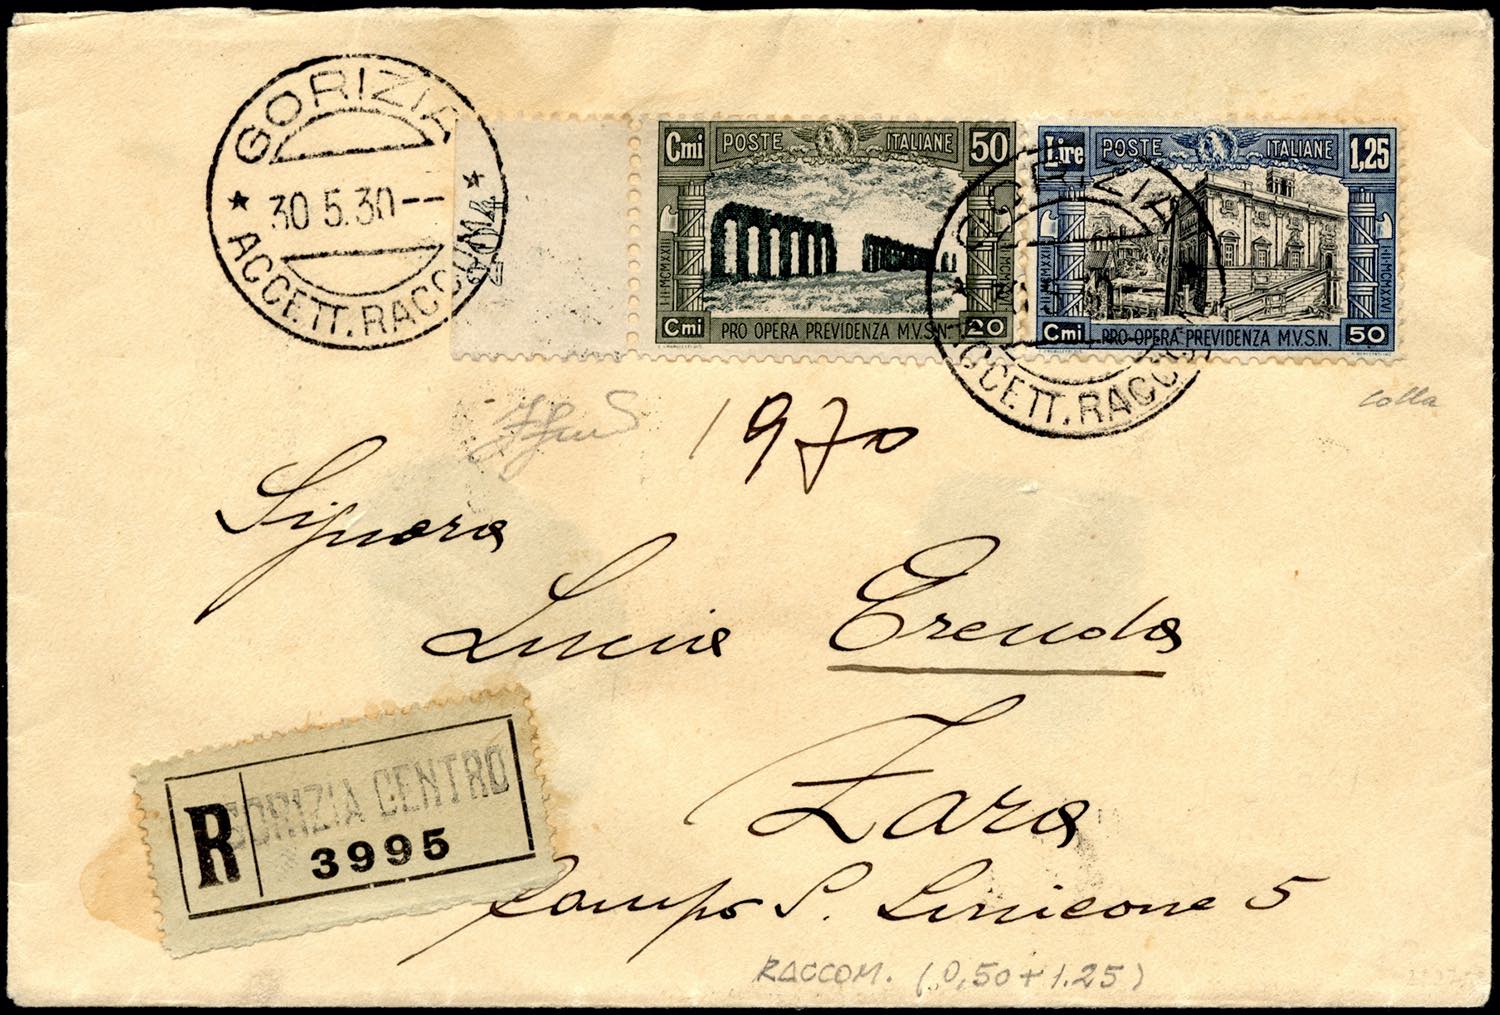 GORIZIA
30 5.30
ACCETT. RACCOM.
Cmi POSTE ITALIANE 50
I·II·MCMXXIII
Cmi PRO OPERA PREVIDENZA M.V.S.N. 20
Lire POSTE ITALIANE 1,25
Cmi PRO-OPERA PREVIDENZA M.V.S.N. 50
GORIZIA
ACCETT. RACCOM.
colla
1970
Signora
Lucia
Zara
Campo S.
5
R GORIZIA CENTRO
3995
RACCOM. (0,50+1.25)